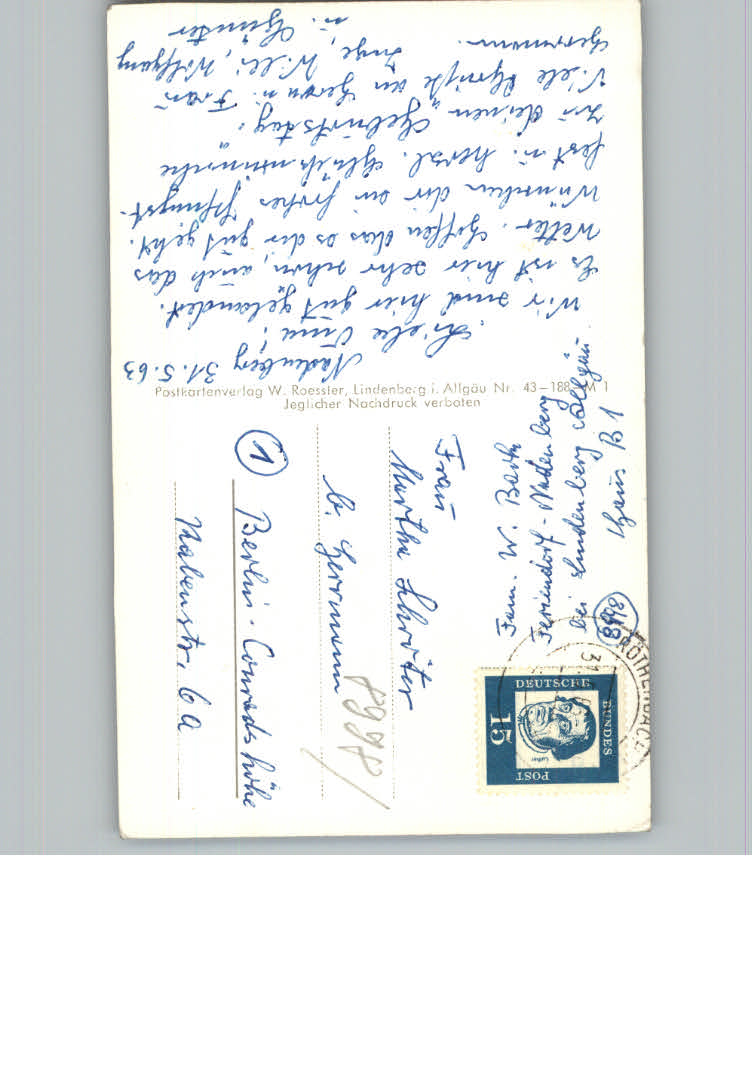 Nadenberg 31.5.63
Liebe Oma!
Wir sind hier gut gelandet.
Es ist hier sehr schön, auch das
Wetter. Hoffen das es dir gut geht.
Wünschen dir ein frohes Pfingst-
fest u. herzl. Glückwünsche
zu deinem Geburtstag.
Viele Grüße an Herrn u. Frau
Herrmann. Inge, Willi, Wolfgang
u. Günter
Postkartenverlag W. Roessler, Lindenberg i. Allgäu Nr. 43–188 M 1
Jeglicher Nachdruck verboten
Fam. W. Barth
Feriendorf-Nadenberg
bei Lindenberg Allgäu
Haus B1
ROTHENBACH
31
DEUTSCHE
BUNDES
POST
15
Luther
Frau
Martha Schröter
b. Herrmann
1 Berlin-Conradshöhe
Rabenstr. 6a
8998/